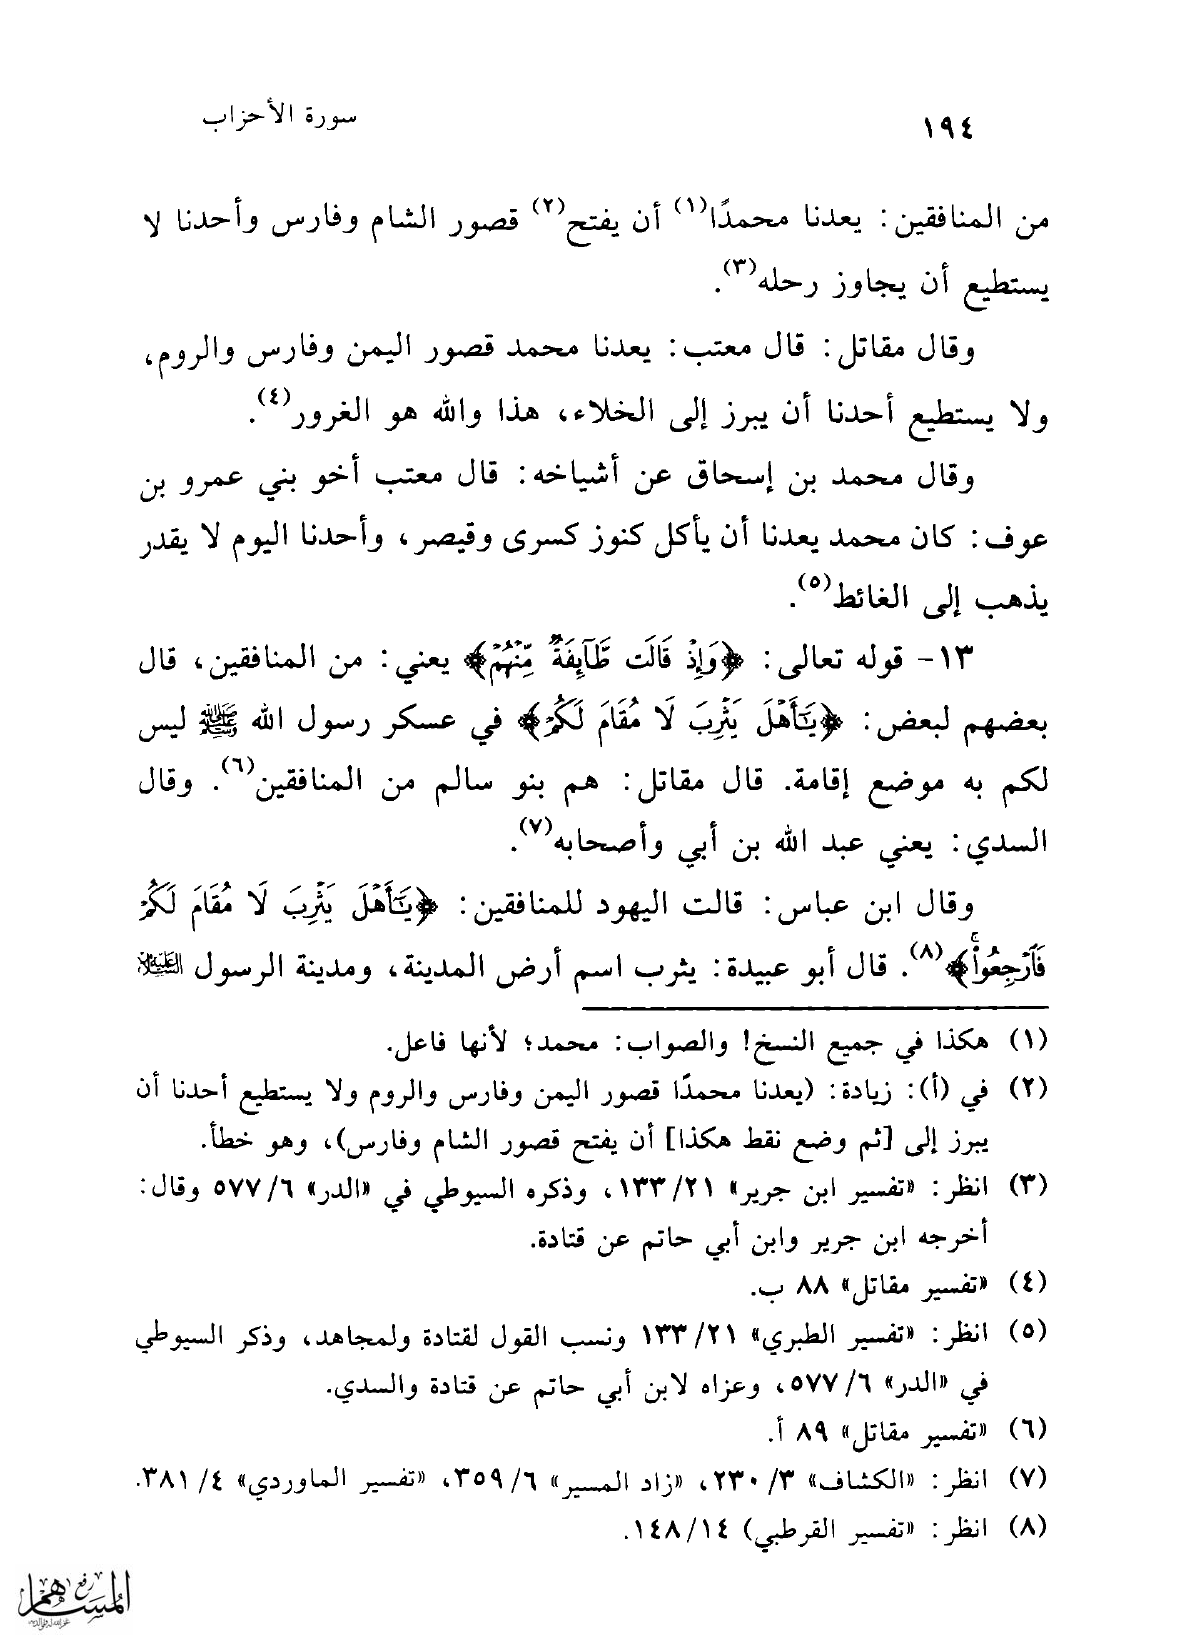 ١٩٤ سورة الأحزاب
من المنافقين: يعدنا محمدًا(١) أن يفتح(٢) قصور الشام وفارس وأحدنا لا
يستطيع أن يجاوز رحله(٣).
وقال مقاتل: قال معتب: يعدنا محمد قصور اليمن وفارس والروم،
ولا يستطيع أحدنا أن يبرز إلى الخلاء، هذا والله هو الغرور(٤).
وقال محمد بن إسحاق عن أشياخه: قال معتب أخو بني عمرو بن
عوف: كان محمد يعدنا أن يأكل كنوز كسرى وقيصر، وأحدنا اليوم لا يقدر
يذهب إلى الغائط(٥).
١٣- قوله تعالى: ﴿وَإِذْ قَالَت طَّآئِفَةٌ مِّنْهُمْ﴾ يعني: من المنافقين، قال
بعضهم لبعض: ﴿يَٰٓأَهْلَ يَثْرِبَ لَا مُقَامَ لَكُمْ﴾ في عسكر رسول الله ﷺ ليس
لكم به موضع إقامة. قال مقاتل: هم بنو سالم من المنافقين(٦). وقال
السدي: يعني عبد الله بن أبي وأصحابه(٧).
وقال ابن عباس: قالت اليهود للمنافقين: ﴿يَٰٓأَهْلَ يَثْرِبَ لَا مُقَامَ لَكُمْ
فَٱرْجِعُوا۟ۚ﴾(٨). قال أبو عبيدة: يثرب اسم أرض المدينة، ومدينة الرسول عليه السلام
(١) هكذا في جميع النسخ! والصواب: محمد؛ لأنها فاعل.
(٢) في (أ): زيادة: (يعدنا محمدًا قصور اليمن وفارس والروم ولا يستطيع أحدنا أن
يبرز إلى [ثم وضع نقط هكذا] أن يفتح قصور الشام وفارس)، وهو خطأ.
(٣) انظر: «تفسير ابن جرير» ٢١/ ١٣٣، وذكره السيوطي في «الدر» ٦/ ٥٧٧ وقال:
أخرجه ابن جرير وابن أبي حاتم عن قتادة.
(٤) «تفسير مقاتل» ٨٨ ب.
(٥) انظر: «تفسير الطبري» ٢١/ ١٣٣ ونسب القول لقتادة ولمجاهد، وذكر السيوطي
في «الدر» ٦/ ٥٧٧، وعزاه لابن أبي حاتم عن قتادة والسدي.
(٦) «تفسير مقاتل» ٨٩ أ.
(٧) انظر: «الكشاف» ٣/ ٢٣٠، «زاد المسير» ٦/ ٣٥٩، «تفسير الماوردي» ٤/ ٣٨١.
(٨) انظر: «تفسير القرطبي) ١٤/ ١٤٨.
رفع
المساهم